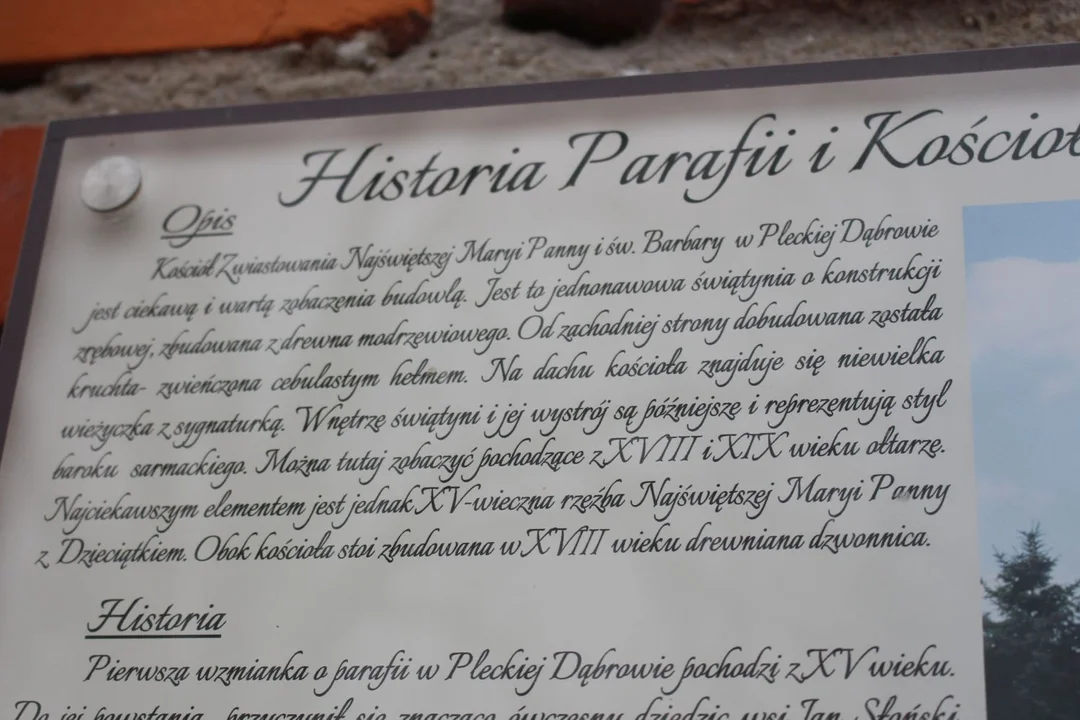 Historia Parafii i Kościoł
Opis
Kościół Zwiastowania Najświętszej Maryi Panny i św. Barbary w Pleckiej Dąbrowie
jest ciekawą i wartą zobaczenia budowlą. Jest to jednonawowa świątynia o konstrukcji
zrębowej, zbudowana z drewna modrzewiowego. Od zachodniej strony dobudowana została
kruchta- zwieńczona cebulastym hełmem. Na dachu kościoła znajduje się niewielka
wieżyczka z sygnaturką. Wnętrze świątyni i jej wystrój są późniejsze i reprezentują styl
baroku sarmackiego. Można tutaj zobaczyć pochodzące z XVIII i XIX wieku ołtarze.
Najciekawszym elementem jest jednak XV-wieczna rzeźba Najświętszej Maryi Panny
z Dzieciątkiem. Obok kościoła stoi zbudowana w XVIII wieku drewniana dzwonnica.
Historia
Pierwsza wzmianka o parafii w Pleckiej Dąbrowie pochodzi z XV wieku.
Do jej powstania przyczynił się znacząco ówczesny dziedzic wsi Jan Słoński